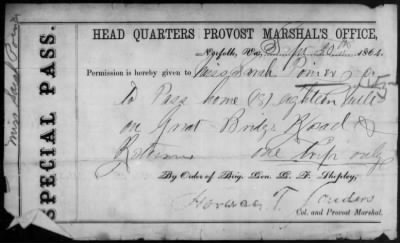 HEAD QUARTERS PROVOST MARSHAL'S OFFICE,
Norfolk, Va., Sept 20th 1864.
Permission is hereby given to Miss Sarah
to Pass home (18) eighteen miles
on Great Bridge Road &
Return one trip only
By Order of Brig. Gen. G. F. Shepley,
T.
Col. and Provost Marshal.
SPECIAL PASS.
Miss Sarah